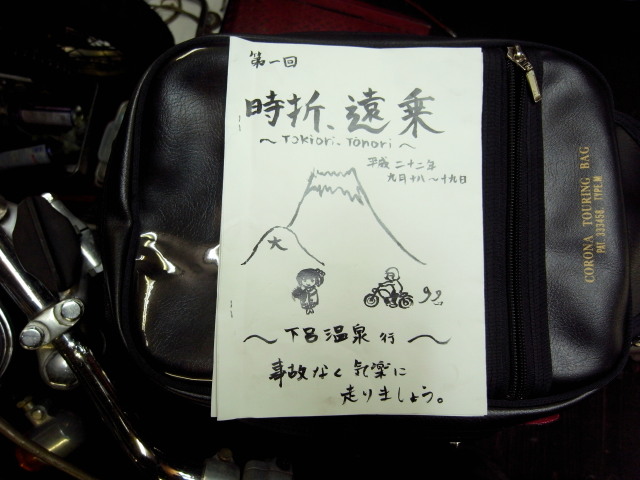 第一回
時折、遠乗
〜Tokiori-Tonori〜
平成二十二年
九月十八〜十九日
大
〜下呂温泉行〜
事故なく気楽に
走りましょう。
CORONA TOURING BAG
PAT 333458 TYPE.M